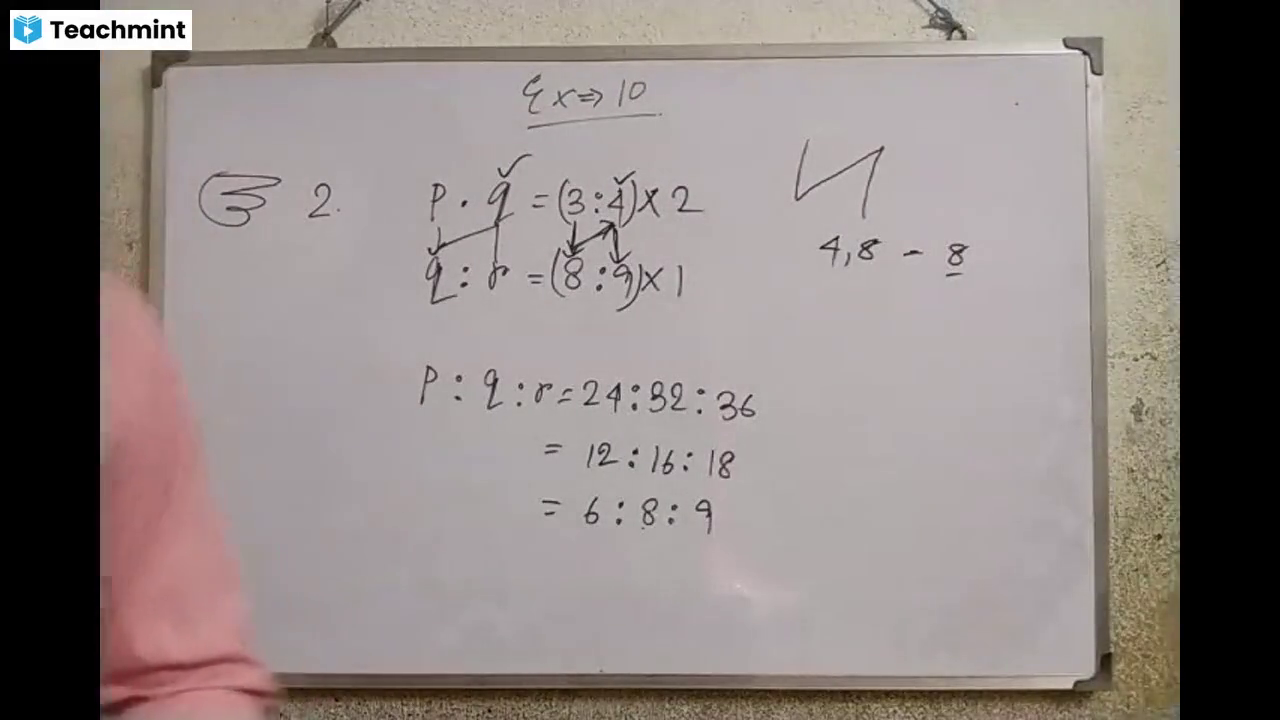 Teachmint
Ex ⇒ 10
2. p : q = (3 : 4) × 2
q : r = (8 : 9) × 1
4, 8 - 8
p : q : r = 24 : 32 : 36
= 12 : 16 : 18
= 6 : 8 : 9